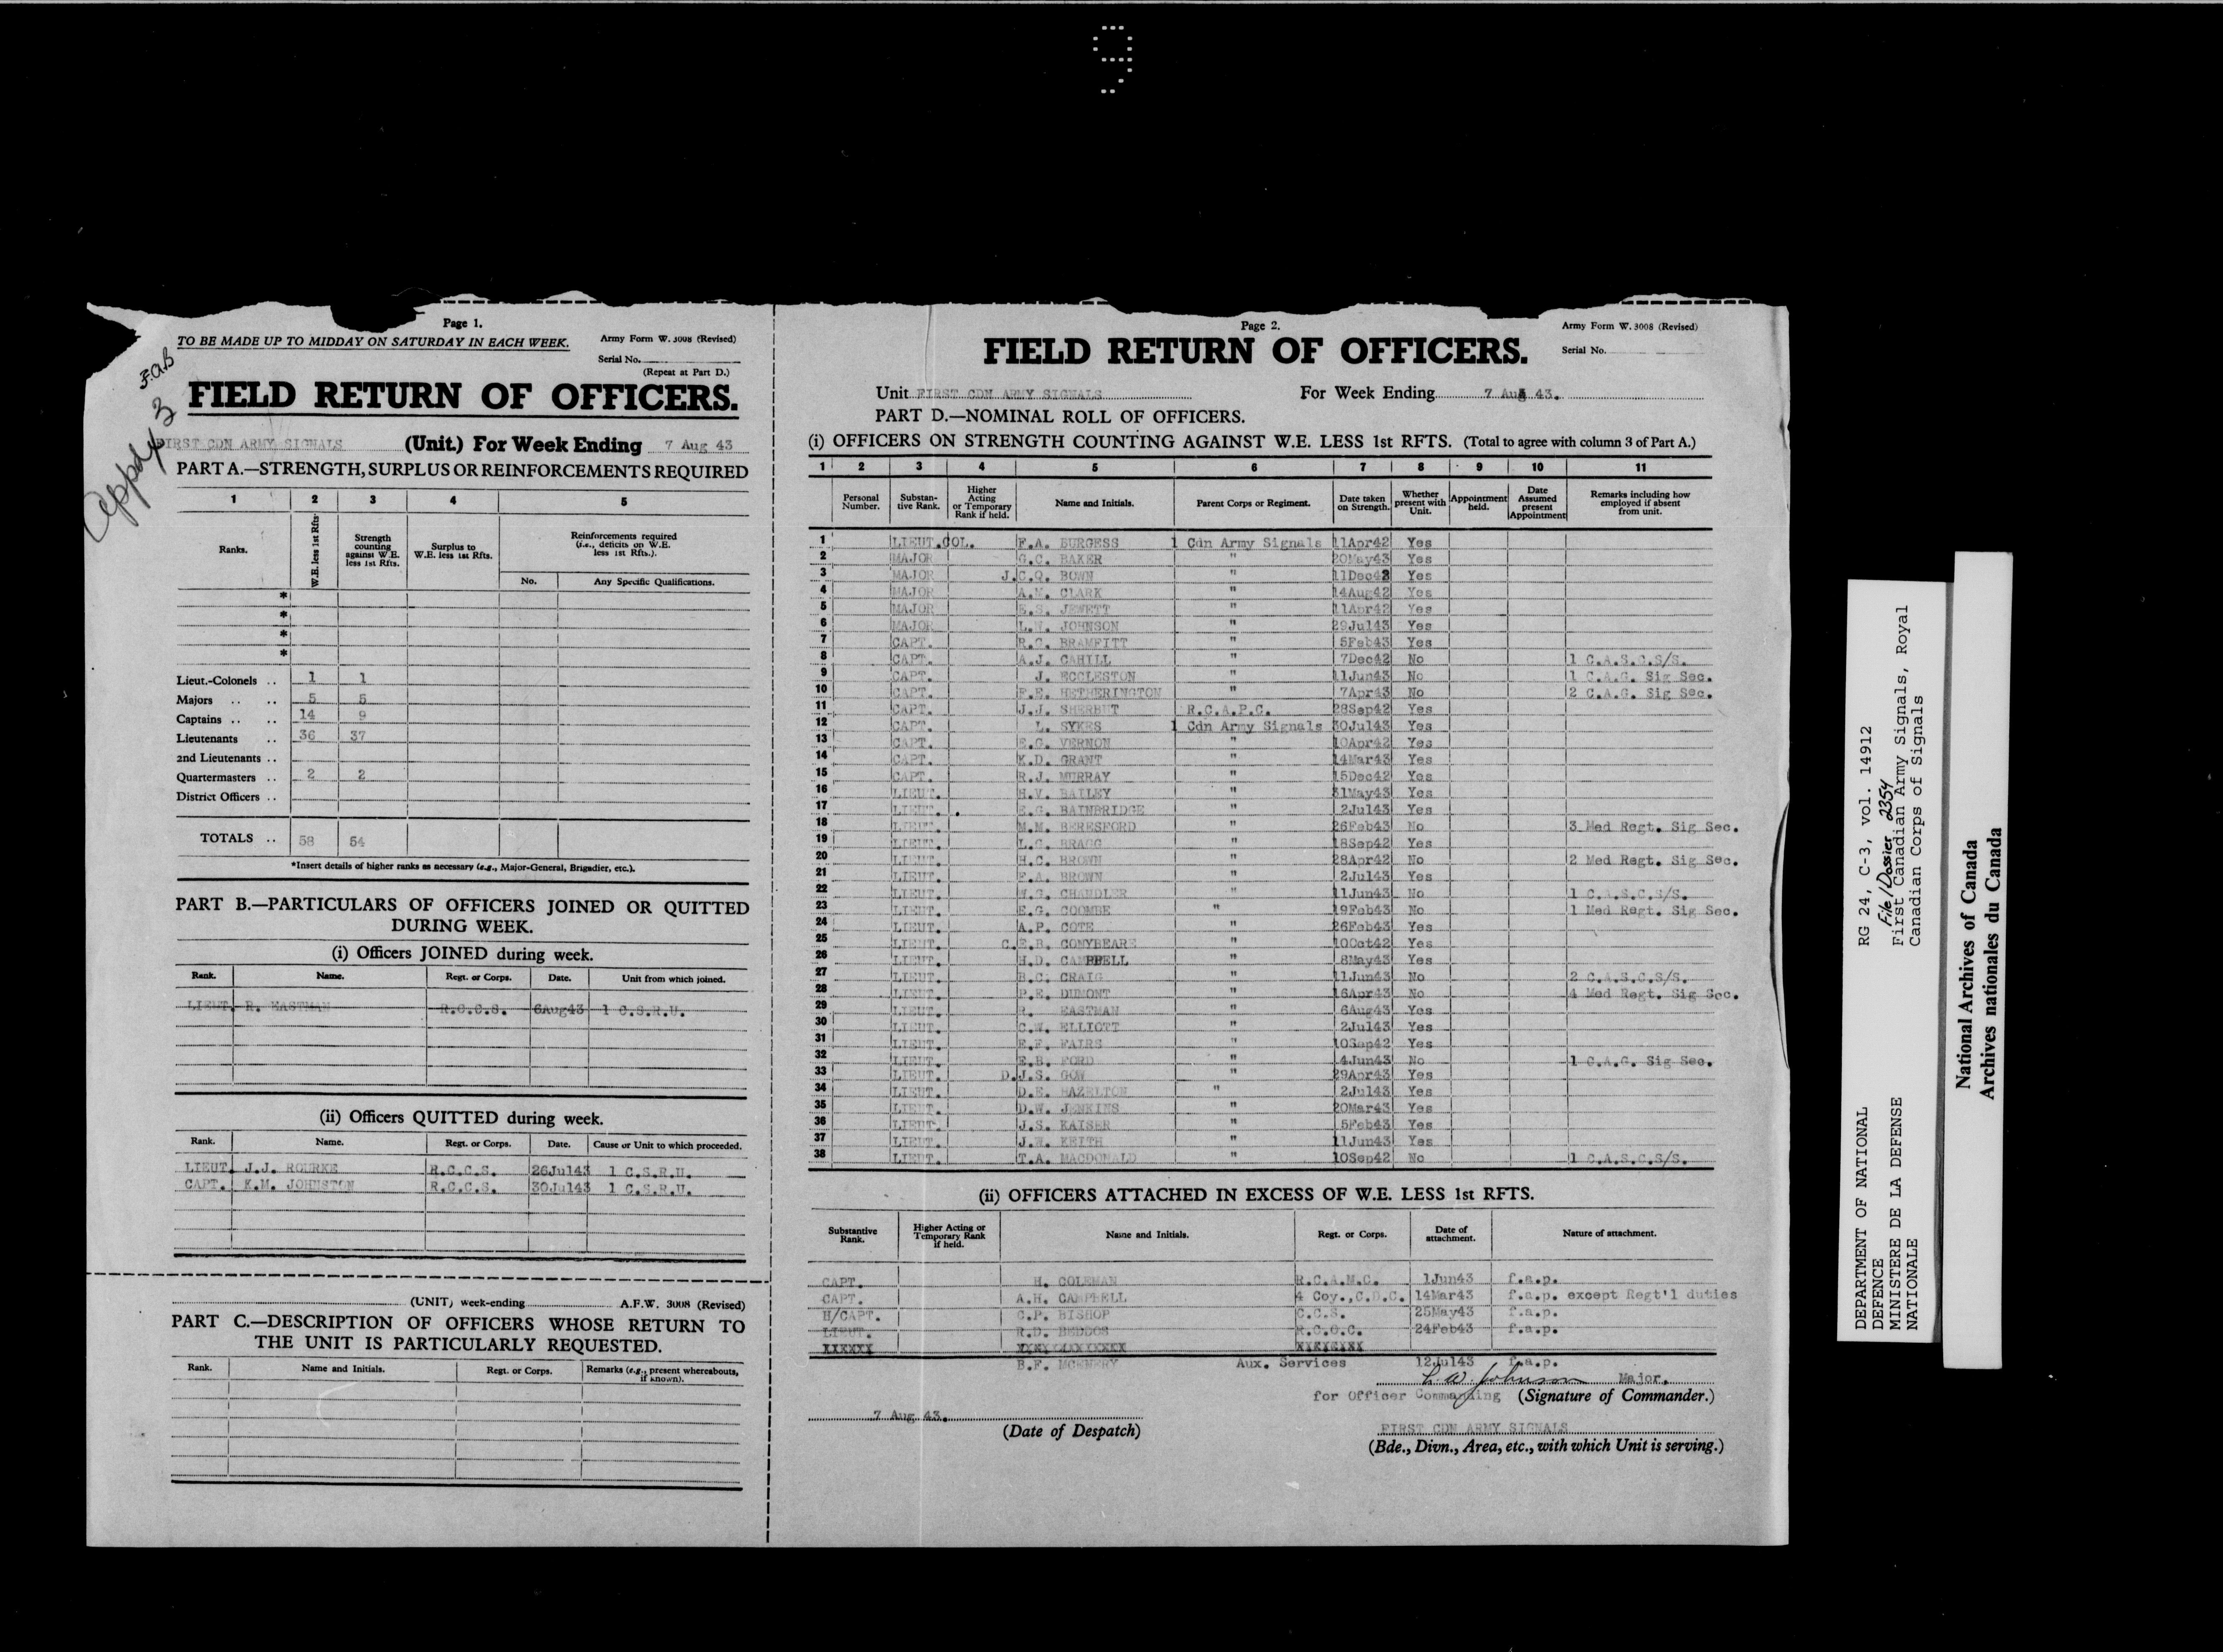 Page 1.
TO BE MADE UP TO MIDDAY ON SATURDAY IN EACH WEEK.
Army Form W. 3008 (Revised)
Serial No.
(Repeat at Part D.)
F.A.B
Appdx 3
FIELD RETURN OF OFFICERS.
FIRST CDN ARMY SIGNALS (Unit.) For Week Ending 7 Aug 43
PART A.—STRENGTH, SURPLUS OR REINFORCEMENTS REQUIRED
1 2 3 4 5
Ranks. W.E. less 1st Rfts. Strength counting against W.E. less 1st Rfts. Surplus to W.E. less 1st Rfts. Reinforcements required (i.e., deficits on W.E. less 1st Rfts.).
No. Any Specific Qualifications.
*
*
*
*
Lieut.-Colonels .. 1 1
Majors .. .. 5 5
Captains .. .. 14 9
Lieutenants .. 36 37
2nd Lieutenants ..
Quartermasters .. 2 2
District Officers ..
TOTALS .. 58 54
*Insert details of higher ranks as necessary (e.g., Major-General, Brigadier, etc.).
PART B.—PARTICULARS OF OFFICERS JOINED OR QUITTED
DURING WEEK.
(i) Officers JOINED during week.
Rank. Name. Regt. or Corps. Date. Unit from which joined.
LIEUT. R. EASTMAN R.C.C.S. 6Aug43 1 C.S.R.U.
(ii) Officers QUITTED during week.
Rank. Name. Regt. or Corps. Date. Cause or Unit to which proceeded.
LIEUT. J.J. ROURKE R.C.C.S. 26Jul43 1 C.S.R.U.
CAPT. K.M. JOHNSTON R.C.C.S. 30Jul43 1 C.S.R.U.
(UNIT) week-ending A.F.W. 3008 (Revised)
PART C.—DESCRIPTION OF OFFICERS WHOSE RETURN TO
THE UNIT IS PARTICULARLY REQUESTED.
Rank. Name and Initials. Regt. or Corps. Remarks (e.g., present whereabouts, if known).
Page 2.
Army Form W. 3008 (Revised)
FIELD RETURN OF OFFICERS.
Serial No.
Unit FIRST CDN ARMY SIGNALS For Week Ending 7 Aug 43.
PART D.—NOMINAL ROLL OF OFFICERS.
(i) OFFICERS ON STRENGTH COUNTING AGAINST W.E. LESS 1st RFTS. (Total to agree with column 3 of Part A.)
1 2 3 4 5 6 7 8 9 10 11
Personal Number. Substantive Rank. Higher Acting or Temporary Rank if held. Name and Initials. Parent Corps or Regiment. Date taken on Strength. Whether present with Unit. Appointment held. Date Assumed present Appointment Remarks including how employed if absent from unit.
1 LIEUT.COL. F.A. BURGESS 1 Cdn Army Signals 11Apr42 Yes
2 MAJOR G.C. BAKER " 20May43 Yes
3 MAJOR J.C.Q. BOWN " 11Dec42 Yes
4 MAJOR A.M. CLARK " 14Aug42 Yes
5 MAJOR E.S. JEWETT " 11Apr42 Yes
6 MAJOR L.W. JOHNSON " 29Jul43 Yes
7 CAPT. R.C. BRAMFITT " 5Feb43 Yes
8 CAPT. A.J. CAHILL " 7Dec42 No 1 C.A.S.C.S/S.
9 CAPT. J. ECCLESTON " 11Jun43 No 1 C.A.G. Sig Sec.
10 CAPT. F.E. HETHERINGTON " 7Apr43 No 2 C.A.G. Sig Sec.
11 CAPT. J.J. SHERBUT R.C.A.P.C. 28Sep42 Yes
12 CAPT. L. SYKES 1 Cdn Army Signals 30Jul43 Yes
13 CAPT. E.G. VERNON " 10Apr42 Yes
14 CAPT. K.D. GRANT " 14Mar43 Yes
15 CAPT. R.J. MURRAY " 15Dec42 Yes
16 LIEUT. H.V. BAILEY " 31May43 Yes
17 LIEUT. E.G. BAINBRIDGE " 2Jul43 Yes
18 LIEUT. M.M. BERESFORD " 26Feb43 No 3 Med Regt. Sig Sec.
19 LIEUT. L.C. BRAGG " 18Sep42 Yes
20 LIEUT. H.C. BROWN " 28Apr42 No 2 Med Regt. Sig Sec.
21 LIEUT. F.A. BROWN " 2Jul43 Yes
22 LIEUT. W.G. CHANDLER " 11Jun43 No 1 C.A.S.C.S/S.
23 LIEUT. E.G. COOMBE " 19Feb43 No 1 Med Regt. Sig Sec.
24 LIEUT. A.P. COTE " 26Feb43 Yes
25 LIEUT. C.E.B. CONYBEARE " 10Oct42 Yes
26 LIEUT. H.D. CAMPBELL " 8May43 Yes
27 LIEUT. B.C. CRAIG " 11Jun43 No 2 C.A.S.C.S/S.
28 LIEUT. P.E. DUMONT " 16Apr43 No 4 Med Regt. Sig Sec.
29 LIEUT. R. EASTMAN " 6Aug43 Yes
30 LIEUT. C.W. ELLIOTT " 2Jul43 Yes
31 LIEUT. E.F. FAIRS " 10Sep42 Yes
32 LIEUT. E.B. FORD " 4Jun43 No 1 C.A.G. Sig Sec.
33 LIEUT. D.J.S. GOW " 29Apr43 Yes
34 LIEUT. D.E. HAZELTON " 2Jul43 Yes
35 LIEUT. D.W. JENKINS " 20Mar43 Yes
36 LIEUT. J.S. KAISER " 5Feb43 Yes
37 LIEUT. J.W. KEITH " 11Jun43 Yes
38 LIEUT. T.A. MACDONALD " 10Sep42 No 1 C.A.S.C.S/S.
(ii) OFFICERS ATTACHED IN EXCESS OF W.E. LESS 1st RFTS.
Substantive Rank. Higher Acting or Temporary Rank if held. Name and Initials. Regt. or Corps. Date of attachment. Nature of attachment.
CAPT. H. COLEMAN R.C.A.M.C. 1Jun43 f.a.p.
CAPT. A.H. CAMPBELL 4 Coy.,C.D.C. 14Mar43 f.a.p. except Regt'l duties
H/CAPT. C.P. BISHOP C.C.S. 25May43 f.a.p.
LIEUT. R.D. BEDDOS R.C.O.C. 24Feb43 f.a.p.
B.F. MCENERY Aux. Services 12Jul43 f.a.p.
L W Johnson Major.
for Officer Commanding (Signature of Commander.)
7 Aug 43.
(Date of Despatch)
FIRST CDN ARMY SIGNALS
(Bde., Divn., Area, etc., with which Unit is serving.)
DEPARTMENT OF NATIONAL DEFENCE
MINISTERE DE LA DEFENSE NATIONALE
RG 24, C-3, vol. 14912
File/Dossier 2354
First Canadian Army Signals, Royal
Canadian Corps of Signals
National Archives of Canada
Archives nationales du Canada